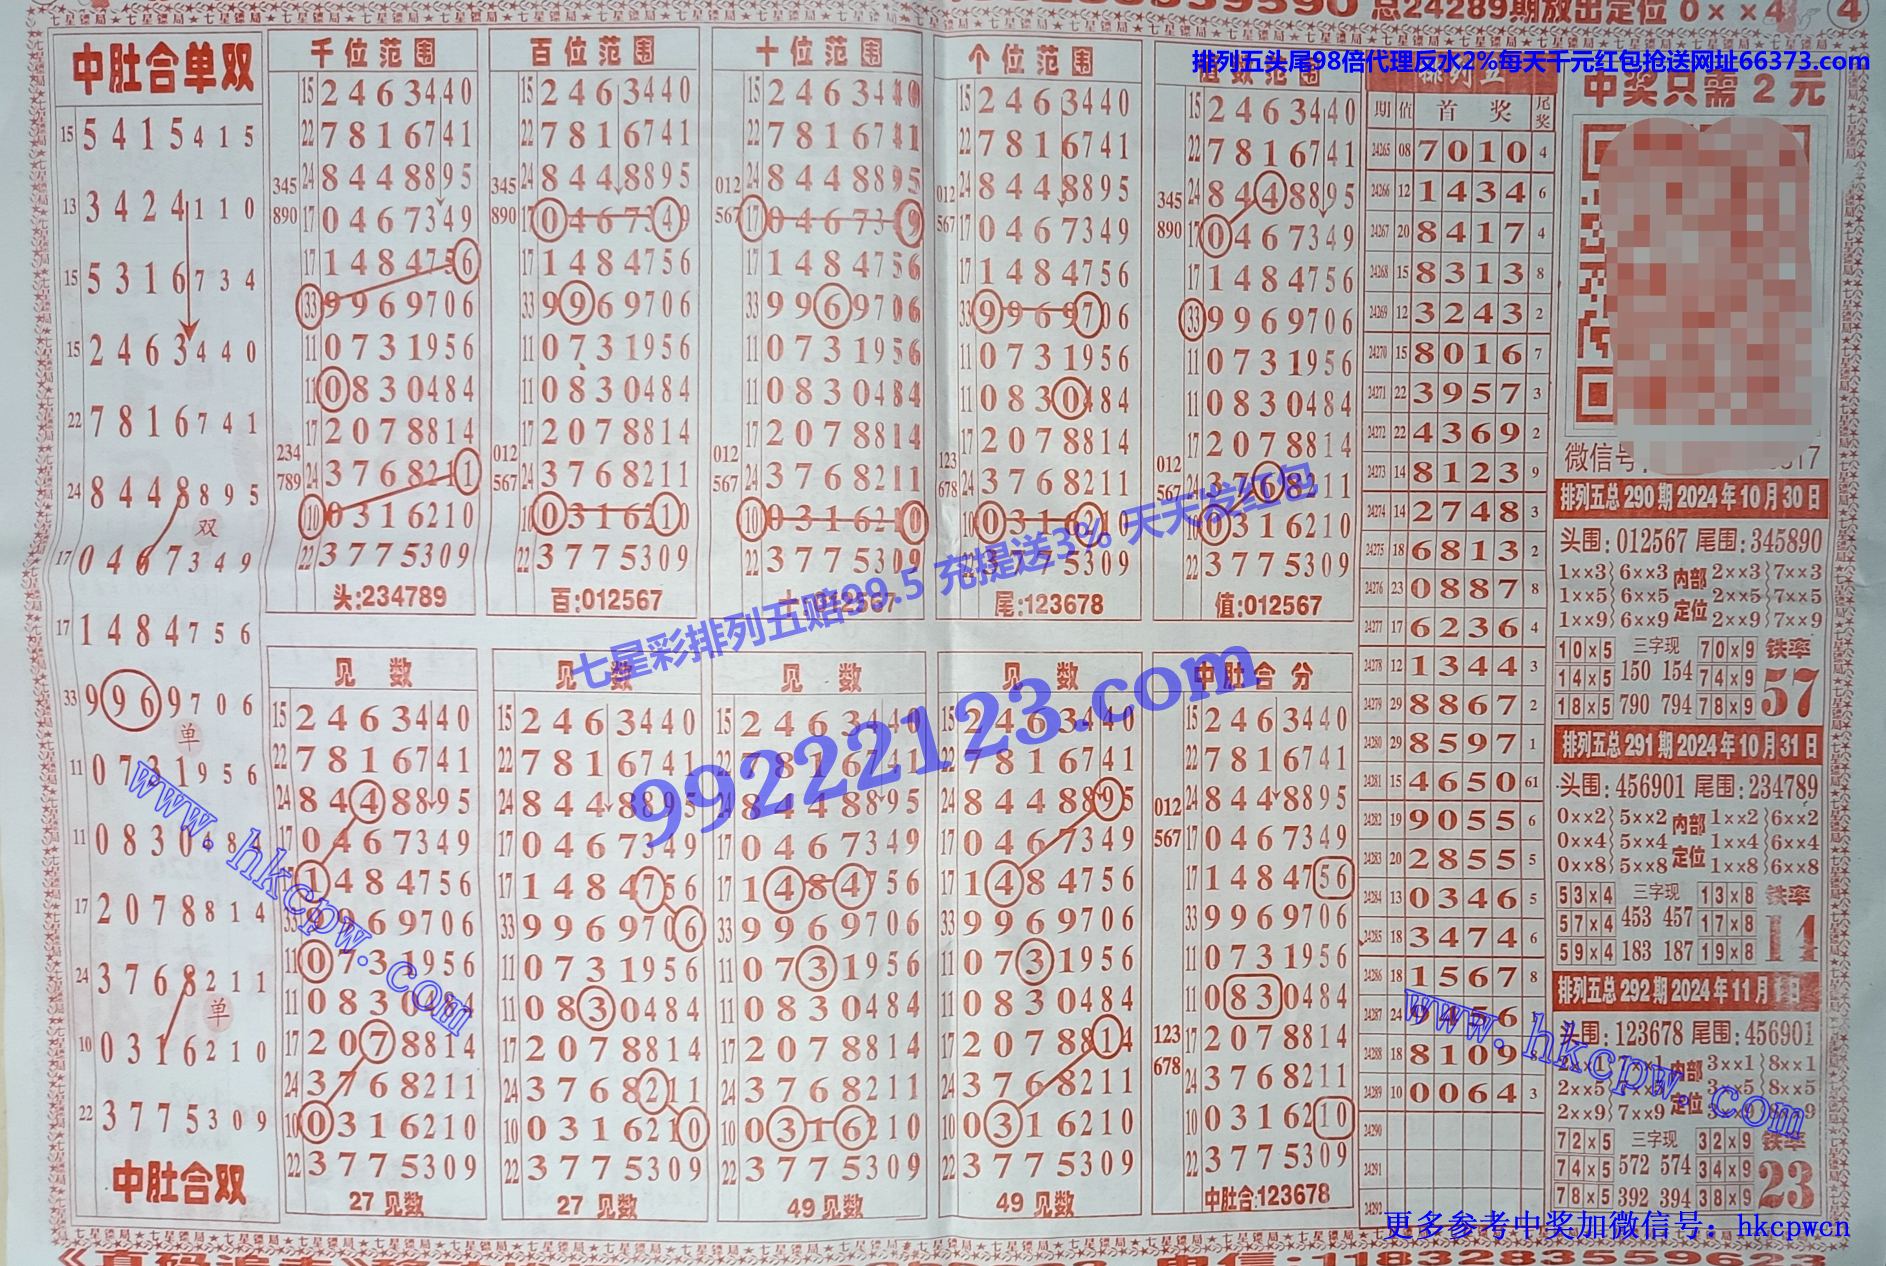 总24289期放出定位 0××4 ④
排列五头尾98倍代理反水2%每天千元红包抢送网址66373.com
中奖只需 2 元
中肚合单双
15 5 4 1 5 4 1 5
13 3 4 2 4 1 1 0
15 5 3 1 6 7 3 4
15 2 4 6 3 4 4 0
22 7 8 1 6 7 4 1
24 8 4 4 8 8 9 5
双
17 0 4 6 7 3 4 9
17 1 4 8 4 7 5 6
33 9 9 6 9 7 0 6
单
11 0 7 3 1 9 5 6
11 0 8 3 0 4 8 4
17 2 0 7 8 8 1 4
24 3 7 6 8 2 1 1
单
10 0 3 1 6 2 1 0
22 3 7 7 5 3 0 9
中肚合双
千位范围
15 2463440
22 7816741
345 24 8448895
890 17 0467349
17 1484756
33 9969706
11 0731956
11 0830484
17 2078814
234
789 24 3768211
10 0316210
22 3775309
头:234789
百位范围
15 2463440
22 7816741
345 24 8448895
890 17 0467349
17 1484756
33 9969706
11 0731956
11 0830484
17 2078814
012
567 24 3768211
10 0316210
22 3775309
百:012567
十位范围
15 2463440
22 7816741
012 24 8448895
567 17 0467349
17 1484756
33 9969706
11 0731956
11 0830484
17 2078814
012
567 24 3768211
10 0316210
22 3775309
十:012567
个位范围
15 2463440
22 7816741
012 24 8448895
567 17 0467349
17 1484756
33 9969706
11 0731956
11 0830484
17 2078814
123
678 24 3768211
10 0316210
22 3775309
尾:123678
值数范围
15 2463440
22 7816741
345 24 8448895
890 17 0467349
17 1484756
33 9969706
11 0731956
11 0830484
17 2078814
012
567 24 3768211
10 0316210
22 3775309
值:012567
见数
15 2463440
22 7816741
24 8448895
17 0467349
17 1484756
33 9969706
11 0731956
11 0830484
17 2078814
24 3768211
10 0316210
22 3775309
27 见数
见数
15 2463440
22 7816741
24 8448895
17 0467349
17 1484756
33 9969706
11 0731956
11 0830484
17 2078814
24 3768211
10 0316210
22 3775309
27 见数
见数
15 2463440
22 7816741
24 8448895
17 0467349
17 1484756
33 9969706
11 0731956
11 0830484
17 2078814
24 3768211
10 0316210
22 3775309
49 见数
见数
15 2463440
22 7816741
24 8448895
17 0467349
17 1484756
33 9969706
11 0731956
11 0830484
17 2078814
24 3768211
10 0316210
22 3775309
49 见数
中肚合分
15 2463440
22 7816741
012 24 8448895
567 17 0467349
17 1484756
33 9969706
11 0731956
11 0830484
123 17 2078814
678 24 3768211
10 0316210
22 3775309
中肚合:123678
排列五
期 值 首奖 尾奖
24265 08 7010 4
24266 12 1434 6
24267 20 8417 4
24268 15 8313 8
24269 12 3243 2
24270 15 8016 7
24271 22 3957 3
24272 22 4369 2
24273 14 8123 9
24274 14 2748 3
24275 18 6813 2
24276 23 0887 8
24277 17 6236 4
24278 12 1344 3
24279 29 8867 2
24280 29 8597 1
24281 15 4650 61
24282 19 9055 6
24283 20 2855 5
24284 13 0346 5
24285 18 3474 6
24286 18 1567 8
24287 24 9456
24288 18 8109
24289 10 0064 3
24290
24291
24292
微信号
排列五总 290 期 2024 年 10 月 30 日
头围:012567 尾围:345890
1××3 6××3 内部 2××3 7××3
1××5 6××5 定位 2××5 7××5
1××9 6××9 2××9 7××9
10×5 三字现 70×9 铁率
14×5 150 154 74×9 57
18×5 790 794 78×9
排列五总 291 期 2024 年 10 月 31 日
头围:456901 尾围:234789
0××2 5××2 内部 1××2 6××2
0××4 5××4 定位 1××4 6××4
0××8 5××8 1××8 6××8
53×4 三字现 13×8 铁率
57×4 453 457 17×8 14
59×4 183 187 19×8
排列五总 292 期 2024 年 11 月 1 日
头围:123678 尾围:456901
2××1 7××1 内部 3××1 8××1
2××5 定位 3××5 8××5
2××9 7××9
72×5 三字现 32×9 铁率
74×5 572 574 34×9 23
78×5 392 394 38×9
七星彩排列五赔99.5 充提送3% 天天发红包
99222123.com
www.hkcpw.com
www.hkcpw.com
更多参考中奖加微信号：hkcpwcn